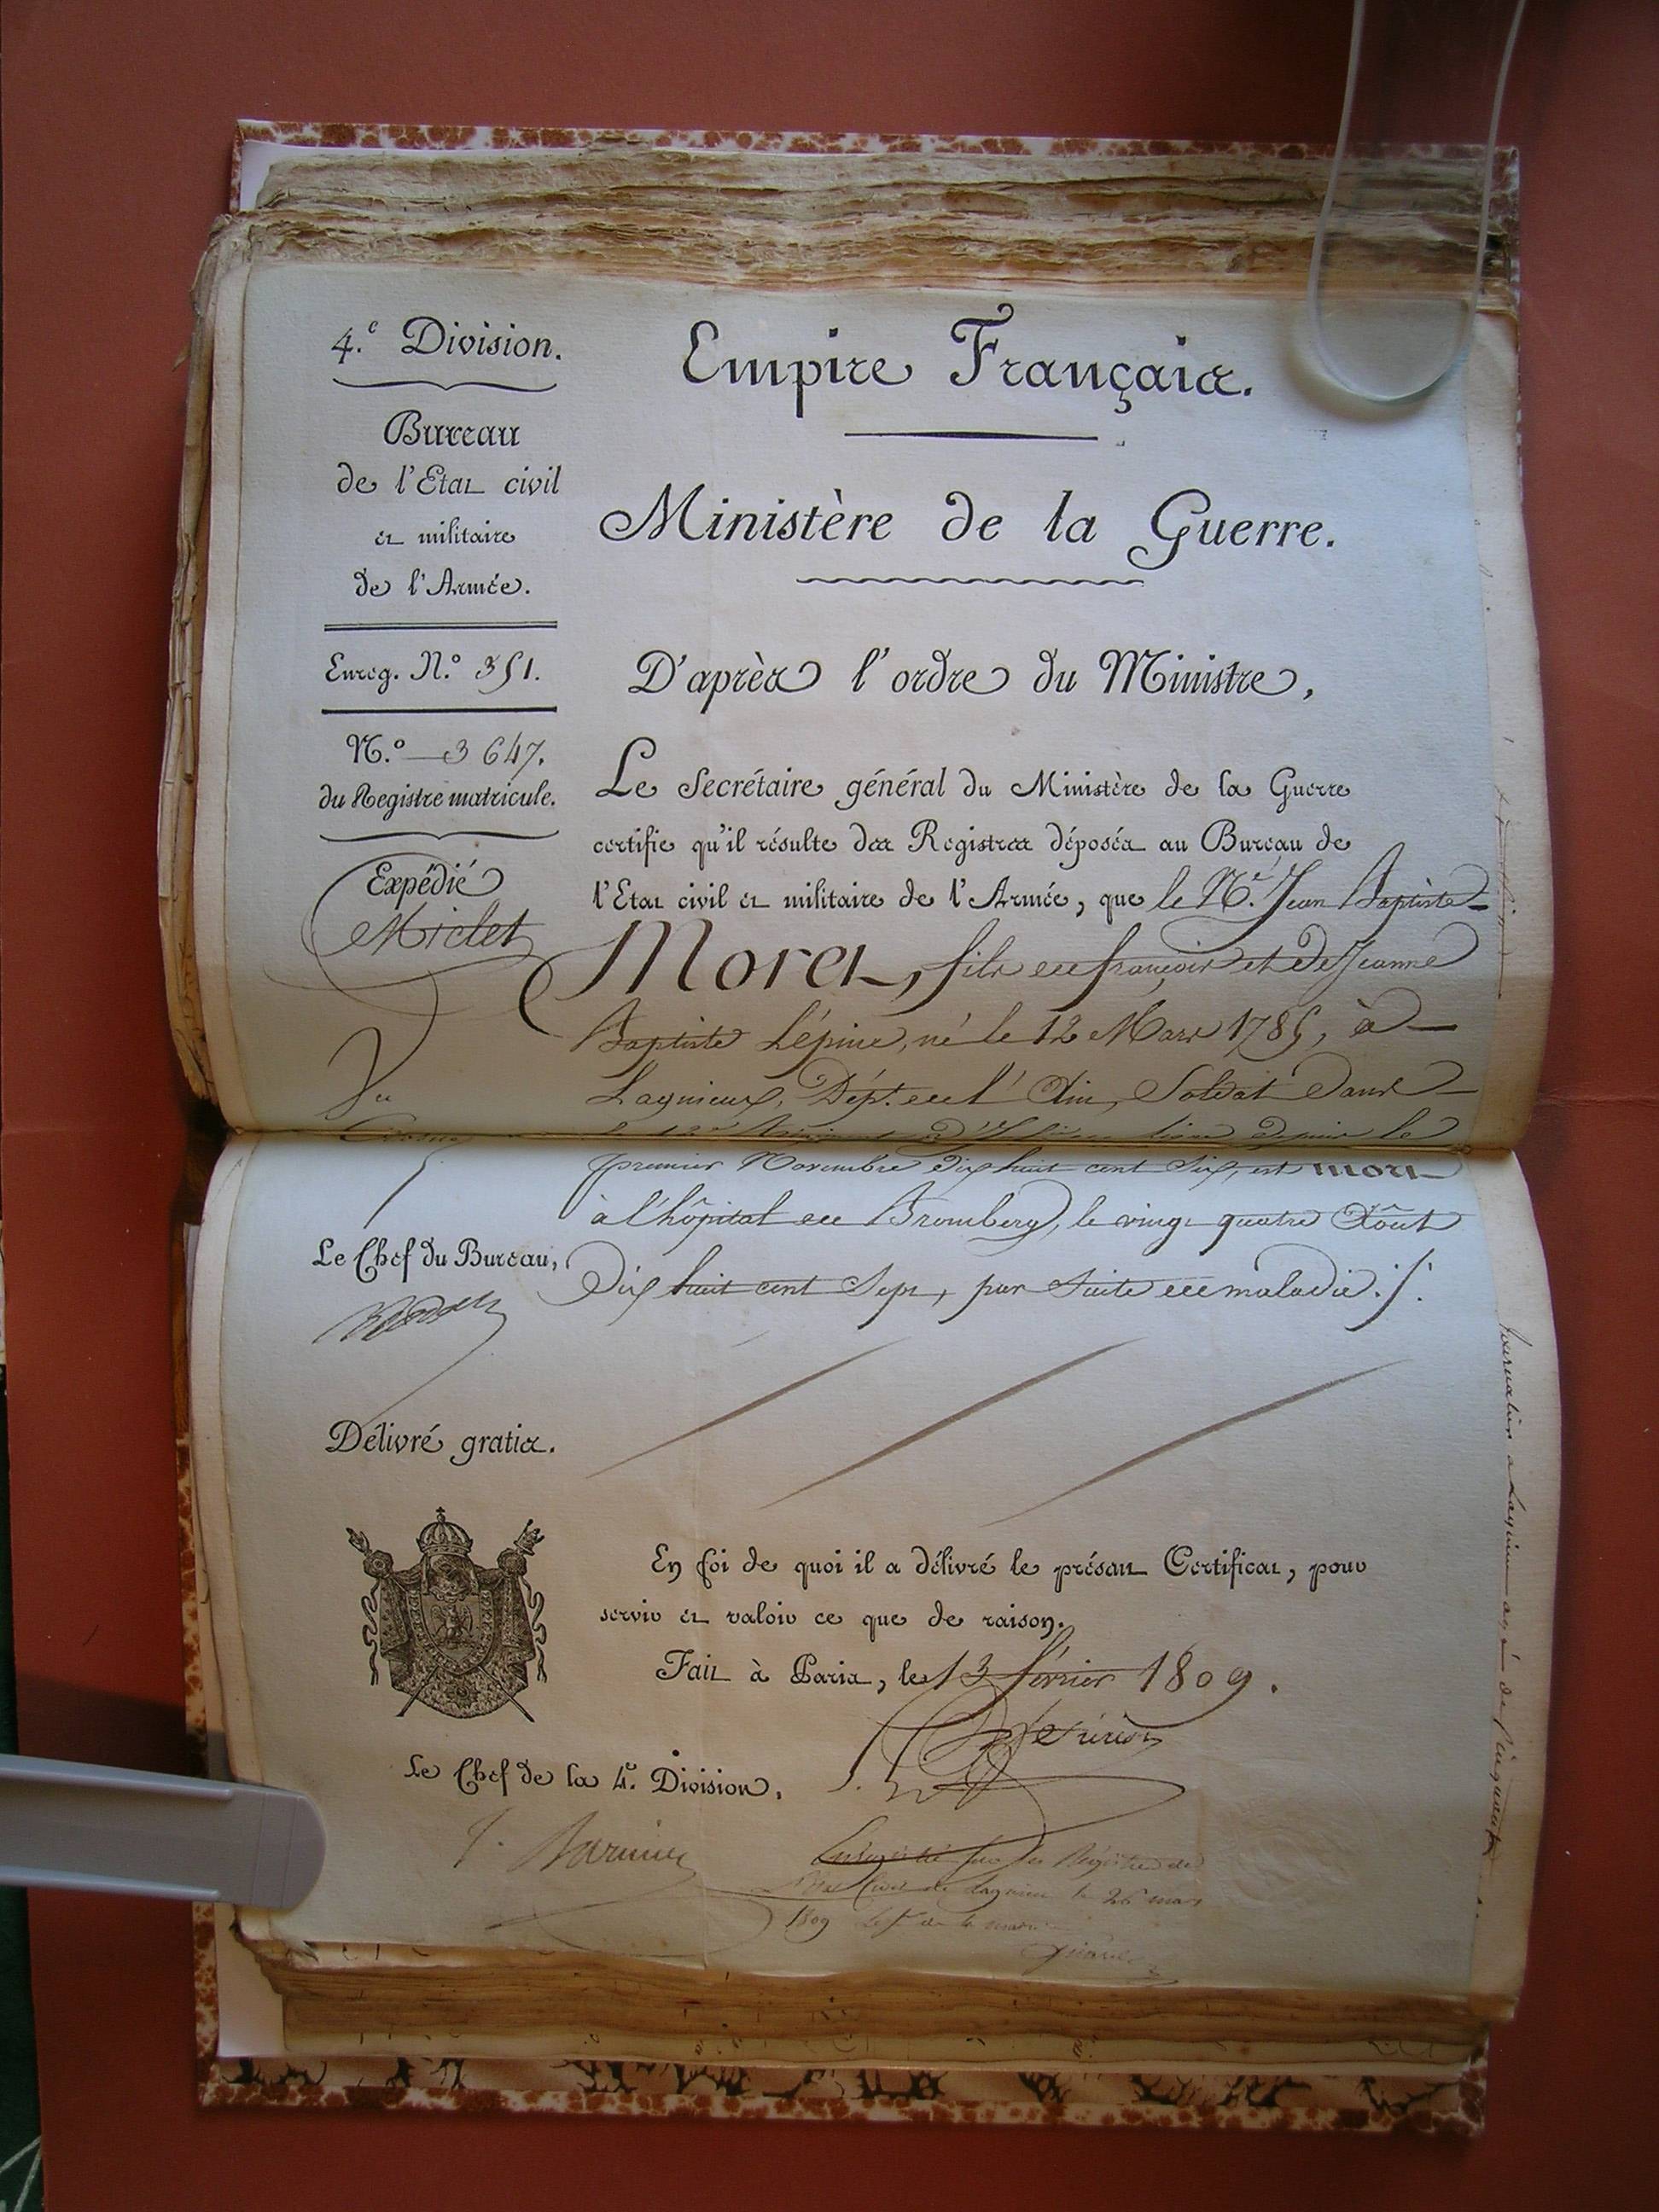 4.e Division.
Bureau
de l'Etat civil
et militaire
de l'Armée.
Enreg. N.o 351.
N.o 3647.
du Registre matricule.
Expédié
Miclet
Vu
Le Chef du Bureau,
Délivré gratis.
Empire Français.
Ministère de la Guerre.
D'après l'ordre du Ministre,
Le Secrétaire général du Ministère de la Guerre
certifie qu'il résulte des Registres déposés au Bureau de
l'Etat civil et militaire de l'Armée, que le N.é Jean Baptiste
Moret, fils de françois et de Jeanne
Baptiste Lépine, né le 12 Mars 1785, à
Lagnieux, Dép.t de l'Ain, Soldat dans
le 12e Régiment d'Inf.ie de ligne depuis le
premier Novembre dix huit cent Six, est mort
à l'hôpital de Bromberg, le vingt quatre Août
Dix huit cent Sept, par Suite de maladie ./.
En foi de quoi il a délivré le présent Certificat, pour
servir et valoir ce que de raison.
Fait à Paris, le 13 février 1809.
Le Chef de la 4.e Division,
Barnier
sur les Registres de
l'Etat Civil de Lagnieu le 26 mars
1809